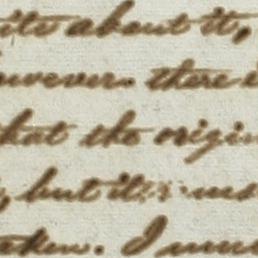 ite about it,
owever. there i
that the origin
, but it
aken. I mus